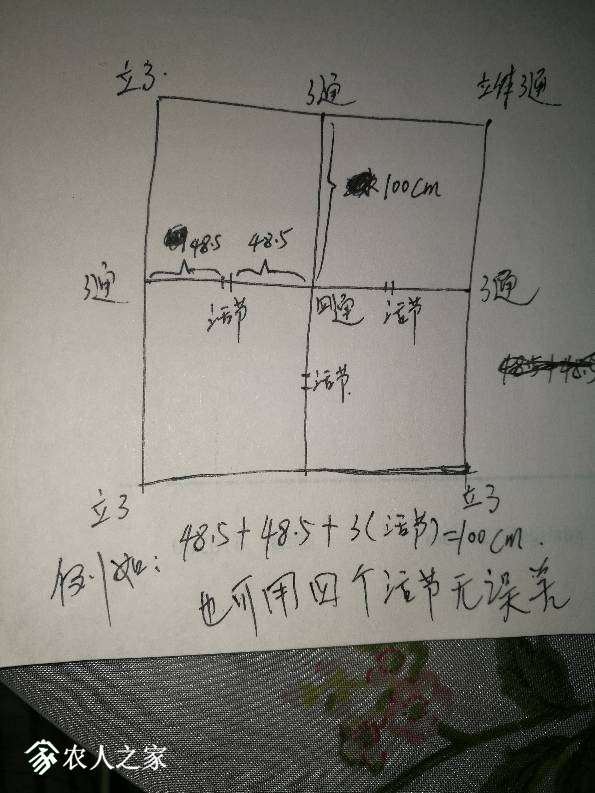 立3.
3通
立体3通
100cm
48.5
48.5
3通
活节
四通
活节
3通
活节
立3
立3
例如：48.5+48.5+3(活节)=100cm.
也可用四个活节无误差
农人之家